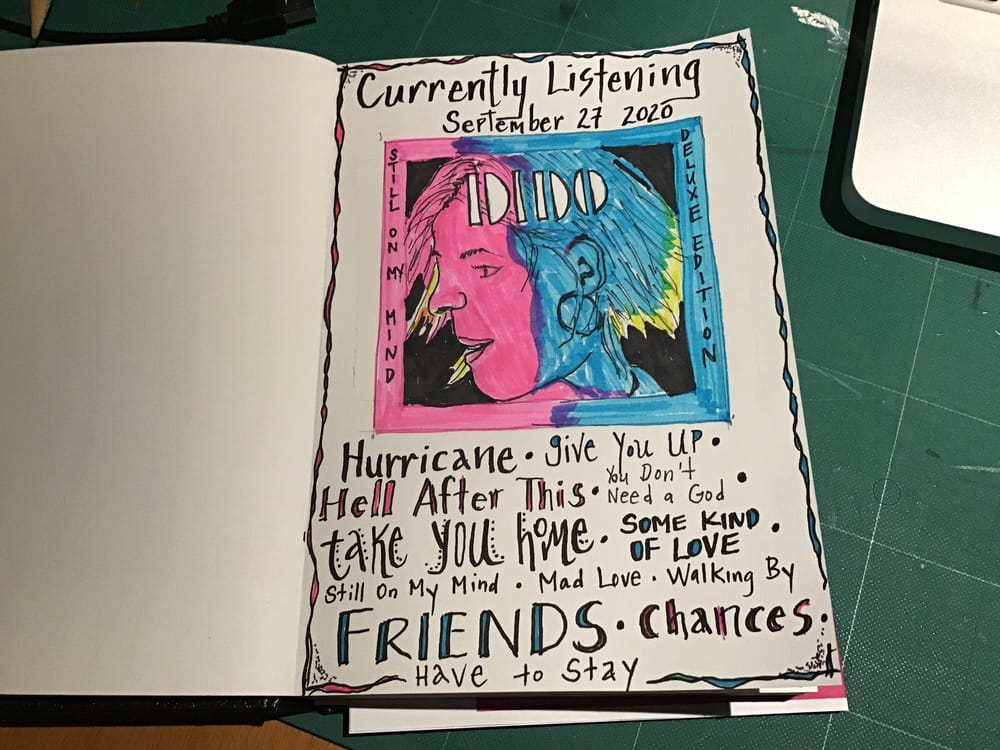 Currently Listening
September 27 2020
STILL ON MY MIND
DIDO
DELUXE EDITION
Hurricane • give You Up •
Hell After This • You Don't Need a God •
take you home • SOME KIND OF LOVE •
Still On My Mind • Mad Love • Walking By
FRIENDS • Chances •
Have to Stay